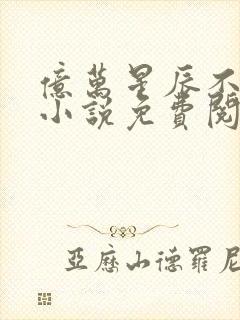 億萬星辰不
小說免費閱
亞歷山德羅尼